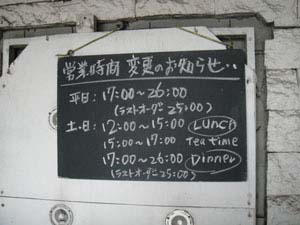 営業時間 変更のお知らせ..
平日:17:00～26:00
(ラストオーダー25:00)
土.日:12:00～15:00 LUNCH
15:00～17:00 Tea time
17:00～26:00 Dinner
(ラストオーダー25:00)